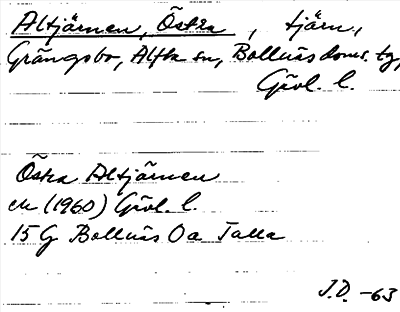 Altjärnen, Östra, tjärn,
Grängsbo, Alfta sn, Bollnäs doms. tg,
Gävl. l.
Östra Altjärnen
ek (1960) Gävl. l.
15 G Bollnäs 0a Talla
J.D. -63